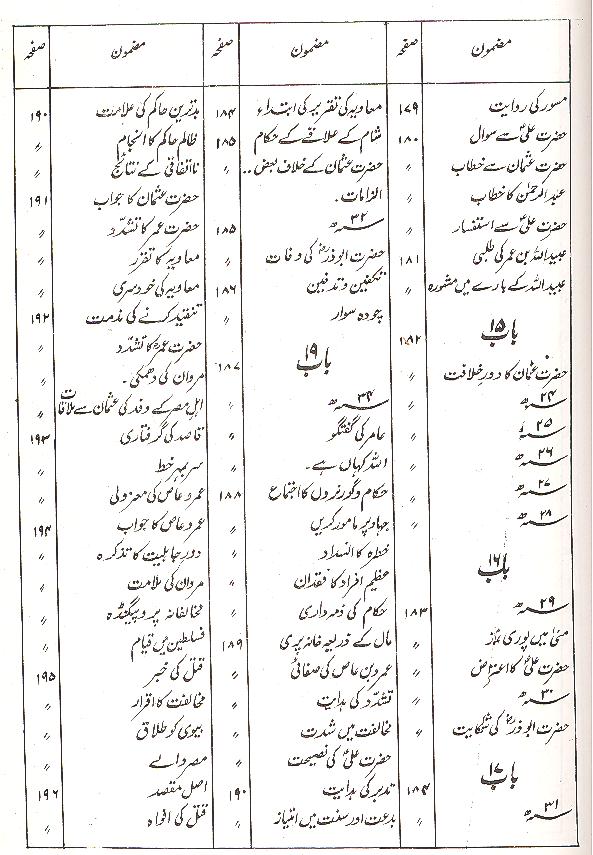 مضمون صفحہ
مسور کی روایت ۱۷۹
حضرت علیؓ سے سوال ۱۸۰
حضرت عثمان سے خطاب 〃
عبدالرحمٰن کا خطاب 〃
حضرت علیؓ سے استفسار 〃
عبیداللہ بن عمر کی طلبی ۱۸۱
عبیداللہ کے بارے میں مشورہ 〃
باب ۱۵ ۱۸۲
حضرت عثمان کا دورِ خلافت 〃
۲۴ سنہ ھ 〃
۲۵ سنہ ھ 〃
۲۶ سنہ ھ 〃
۲۷ سنہ ھ 〃
۲۸ سنہ ھ 〃
باب ۱۶
۲۹ سنہ ھ ۱۸۳
منیٰ میں پوری نماز 〃
حضرت علیؓ کا اعتراض 〃
۳۰ سنہ ھ 〃
حضرت ابوذرؓ کی شکایت 〃
باب ۱۷
۳۱ سنہ ھ ۱۸۴
مضمون صفحہ
معاویہ کی تقریر کی ابتداء ۱۸۴
شام کے علاقے کے حکام ۱۸۵
حضرت عثمان کے خلاف بعض .. 〃
الزامات .
۳۲ سنہ ھ ۱۸۵
حضرت ابوذرؓ کی وفات 〃
تکفین و تدفین ۱۸۶
چودہ سوار 〃
باب ۱۹ ۱۸۷
۳۴ سنہ ھ 〃
عامر کی گفتگو 〃
اللہ کہاں ہے۔ 〃
حکام و گورنروں کا اجتماع ۱۸۸
جہاد پر مامور کریں 〃
خطرہ کا انسداد 〃
عظیم افراد کا فقدان 〃
حکام کی ذمہ داری 〃
مال کے ذریعہ خانہ پری ۱۸۹
عمرو بن عاص کی صفائی 〃
تشدّد کی ہدایت 〃
مخالفت میں شدت 〃
حضرت علیؓ کی نصیحت 〃
تدبر کی ہدایت ۱۹۰
بدعت اور سنت میں امتیاز 〃
مضمون صفحہ
بدترین حاکم کی علامت ۱۹۰
ظالم حاکم کا انجام 〃
نااتفاقی کے نتائج 〃
حضرت عثمان کا جواب ۱۹۱
حضرت عمر کا تشدّد 〃
معاویہ کا تقرر 〃
معاویہ کی خودسری 〃
تنقید کرنے کی مذمت ۱۹۲
حضرت عمرؓ کا تشدّد 〃
مروان کی دھمکی۔ 〃
اہل مصر کے وفد کی عثمان سے ملاقات 〃
قاصد کی گرفتاری ۱۹۳
سربمہر خط 〃
عمرو عاص کی معزولی 〃
عمرو عاص کا جواب ۱۹۴
دورِ جاہلیت کا تذکرہ 〃
مروان کی ملامت 〃
مخالفانہ پروپیگنڈہ 〃
فسلطین میں قیام 〃
قتل کی خبر ۱۹۵
مخالفت کا اقرار 〃
بیوی کو طلاق 〃
مصر والے 〃
اصل مقصد ۱۹۶
قتل کی افواہ 〃